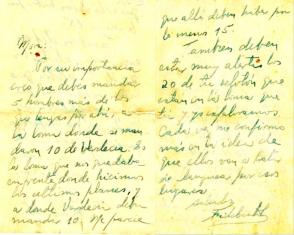 Mora:
Por su importancia
creo que debes mandar
5 hombres más de los
que tengas por ahí, a
la loma donde se man
daron 10 de Verdecia. Es
la loma que nos quedaba
enfrente donde hicimos
los últimos planes, y
a donde Verdecia debe
mandar 10. Me parece
que allí deben haber por
lo menos 15.
También deben
estar muy alertas los
20 de
están en la loma que
tú y yo exploramos
Cada vez me confirmo
más en la idea de
que ellos van a tratar
de
lugares.